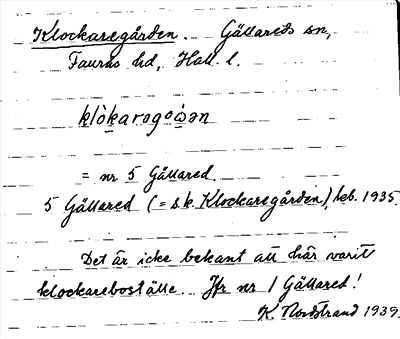 Klockaregården. Gällareds sn,
Faurås hd, Hall. l.
klòkarəgoəən
= nr 5 Gällared.
5 Gällared (= s.k. Klockaregården), leb. 1935.
Det är icke bekant att här varit
klockareboställe. Jfr nr 1 Gällared!
K. Nordstrand 1939.